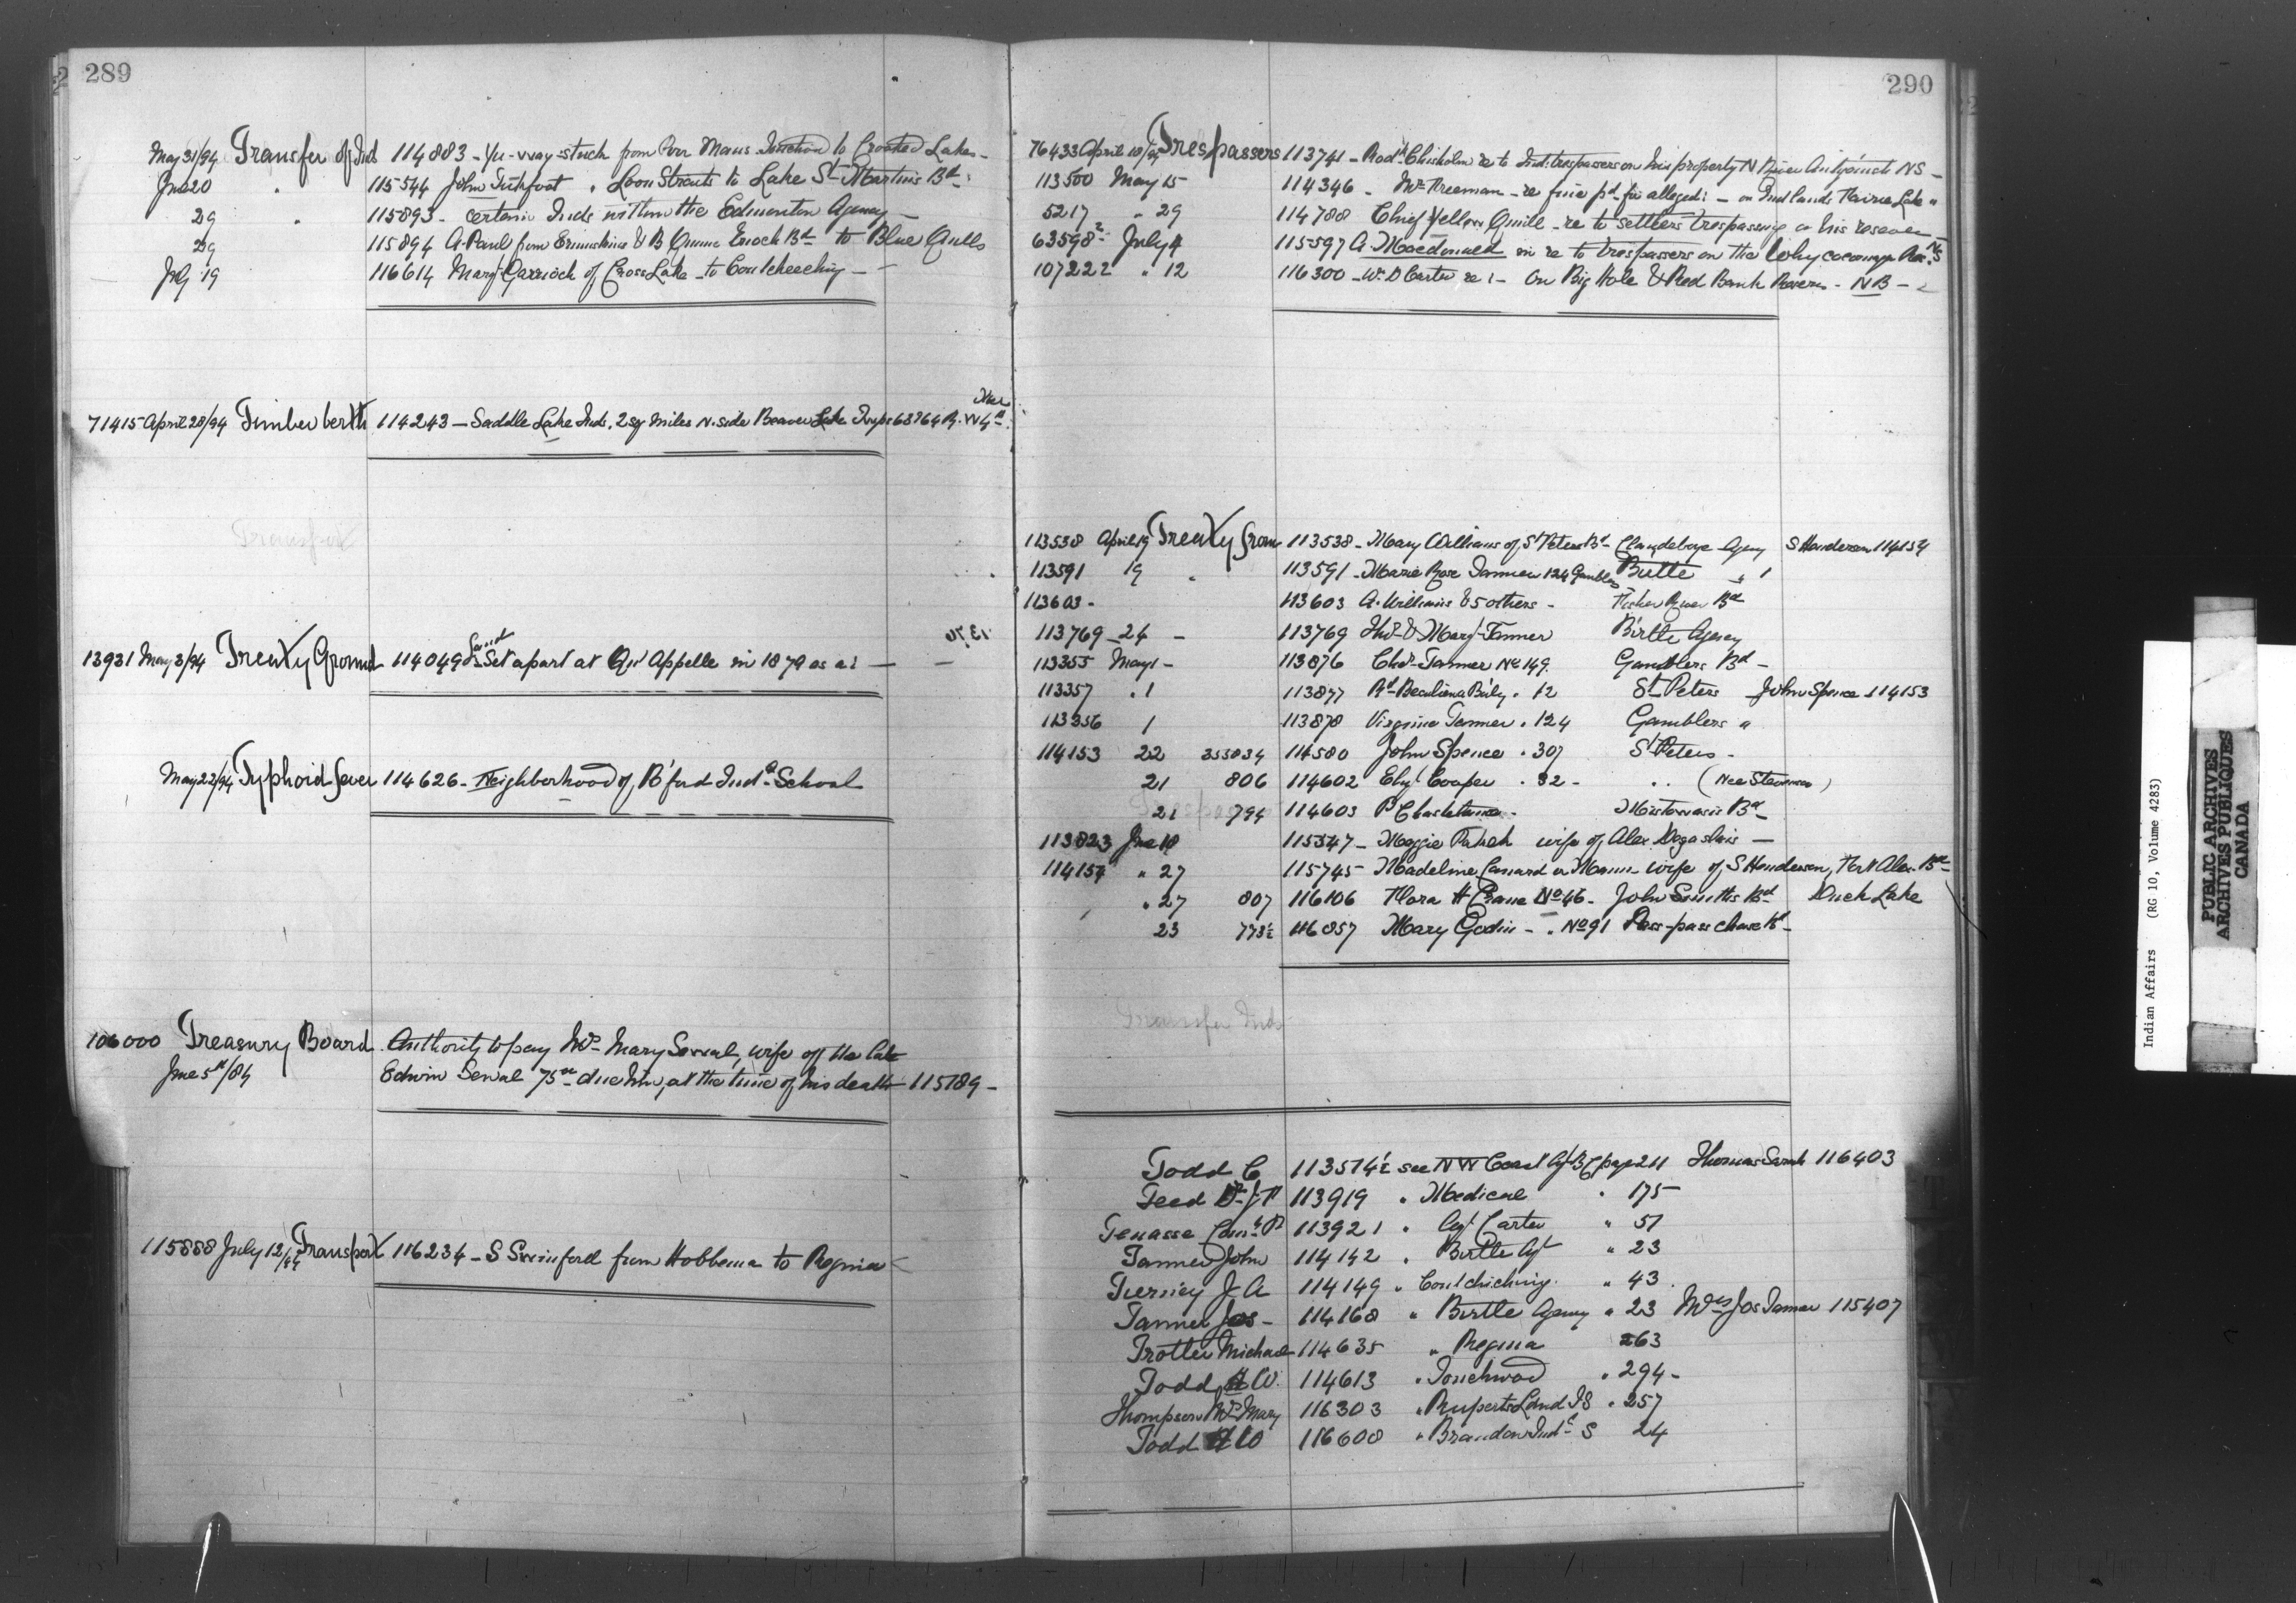 289
May 31/94 Transfer of Inds 114883 - Yu-way-stick from Poor Mans Junction to Crooked Lakes -
June 20 " 115544 John Tuckfoot " Loon Straits to Lake St Martins Bd -
29 " 115893 - Certain Inds within the Edmonton Agency -
29 115894 A. Paul from Ermineskins & B Enoch Bd to Blue Quills
July 19 116614 Mary Garrioch of Cross Lake - to Coutcheeching -
71415 April 28/94 Timber berth 114243 - Saddle Lake Inds. 2 sq miles N. side Beaver Lake R. W 4th Mer
Transport
13931 May 3/94 Treaty Ground 114049 Land Set apart at Qu'Appelle in 1879 as a :- —
May 22/94 Typhoid fever 114626 - Neighborhood of B'ford Indl School
106000 Treasury Board Authority to pay Mrs Mary Sewal, wife of the late
June 5th/84 Edwin Sewal 75.00 due him, at the time of his death 115189 -
115888 July 12/94 Transport 116234 - S Swinford from Hobbema to Regina
290
76433 April 18/94 Trespassers 113741 - Rodk Chisholm re to Ind. trespassers on his property N River Antigonish NS -
113500 May 15 114346 - Mr Freeman - re fine pd for alleged :- on Ind lands Prairie Lake "
5217 " 29 114788 Chief Yellow Quill - re to settlers trespassing on his reserve -
63598 2 July 4 115597 A. Macdonald in re to trespassers on the Whycocomagh Res. NS
107222 " 12 116300 - W. D Carter re :- On Big Hole & Red Bank Reserves - NB -
113538 April 19 Treaty from 113538 - Mary Williams of St Peters Bd - Clandeboye Agency S Henderson 114154
113591 19 " 113591 - Marie Rose Tanner 124 Gamblers Birtle " 1
113603 - 113603 A. Williams & 5 others - Fisher River Bd
113769 24 - 113769 Thos & Mary Tanner Birtle Agency
113355 May 1 - 113876 Chas Tanner No 149. Gamblers Bd -
113357 " 1 113877 " 12 St Peters John Spence 114153
113356 1 113878 Virginie Tanner " 124 Gamblers "
114153 22 353834 114580 John Spence " 307 St Peters -
21 806 114602 Eliz Cooper " 32 - " " (Nee Stevenson)
21 794 114603 Mistowasis Bd
113823 June 18 115347 - Maggie wife of Alex -
114154 " 27 115745 - Madeline wife of S Henderson, Fort Alex. Bd
" 27 807 116106 Flora H Crane No 46 - John Smiths Bd Duck Lake
23 773½ 116857 Mary Godin - " No 91 Pass-pass chase Bd -
Transfer Inds
Todd C 113574½ see NW Coast Agt BC page 211 Thomas Sarah 116403
Teed Dr J P 113919 " Medical " 175
Tenasse 113921 " Agt Carter " 51
Tanner John 114142 " Birtle Agt " 23
Tierney J A 114149 " Coutchiching " 43
Tanner Jos - 114168 " Birtle Agency " 23 Mrs Jos Tanner 115407
Trotter Michael 114635 " Regina 263
Todd H W. 114613 " Touchwood " 294 -
Thompson Mrs Mary 116303 " Ruperts Land I S " 257
Todd H W 116608 " Brandon Indl S 24
Indian Affairs (RG 10, Volume 4283)
PUBLIC ARCHIVES
ARCHIVES PUBLIQUES
CANADA